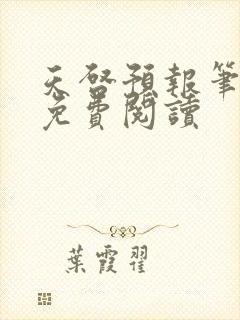 天啓預報筆
免費閱讀
葉霞翟